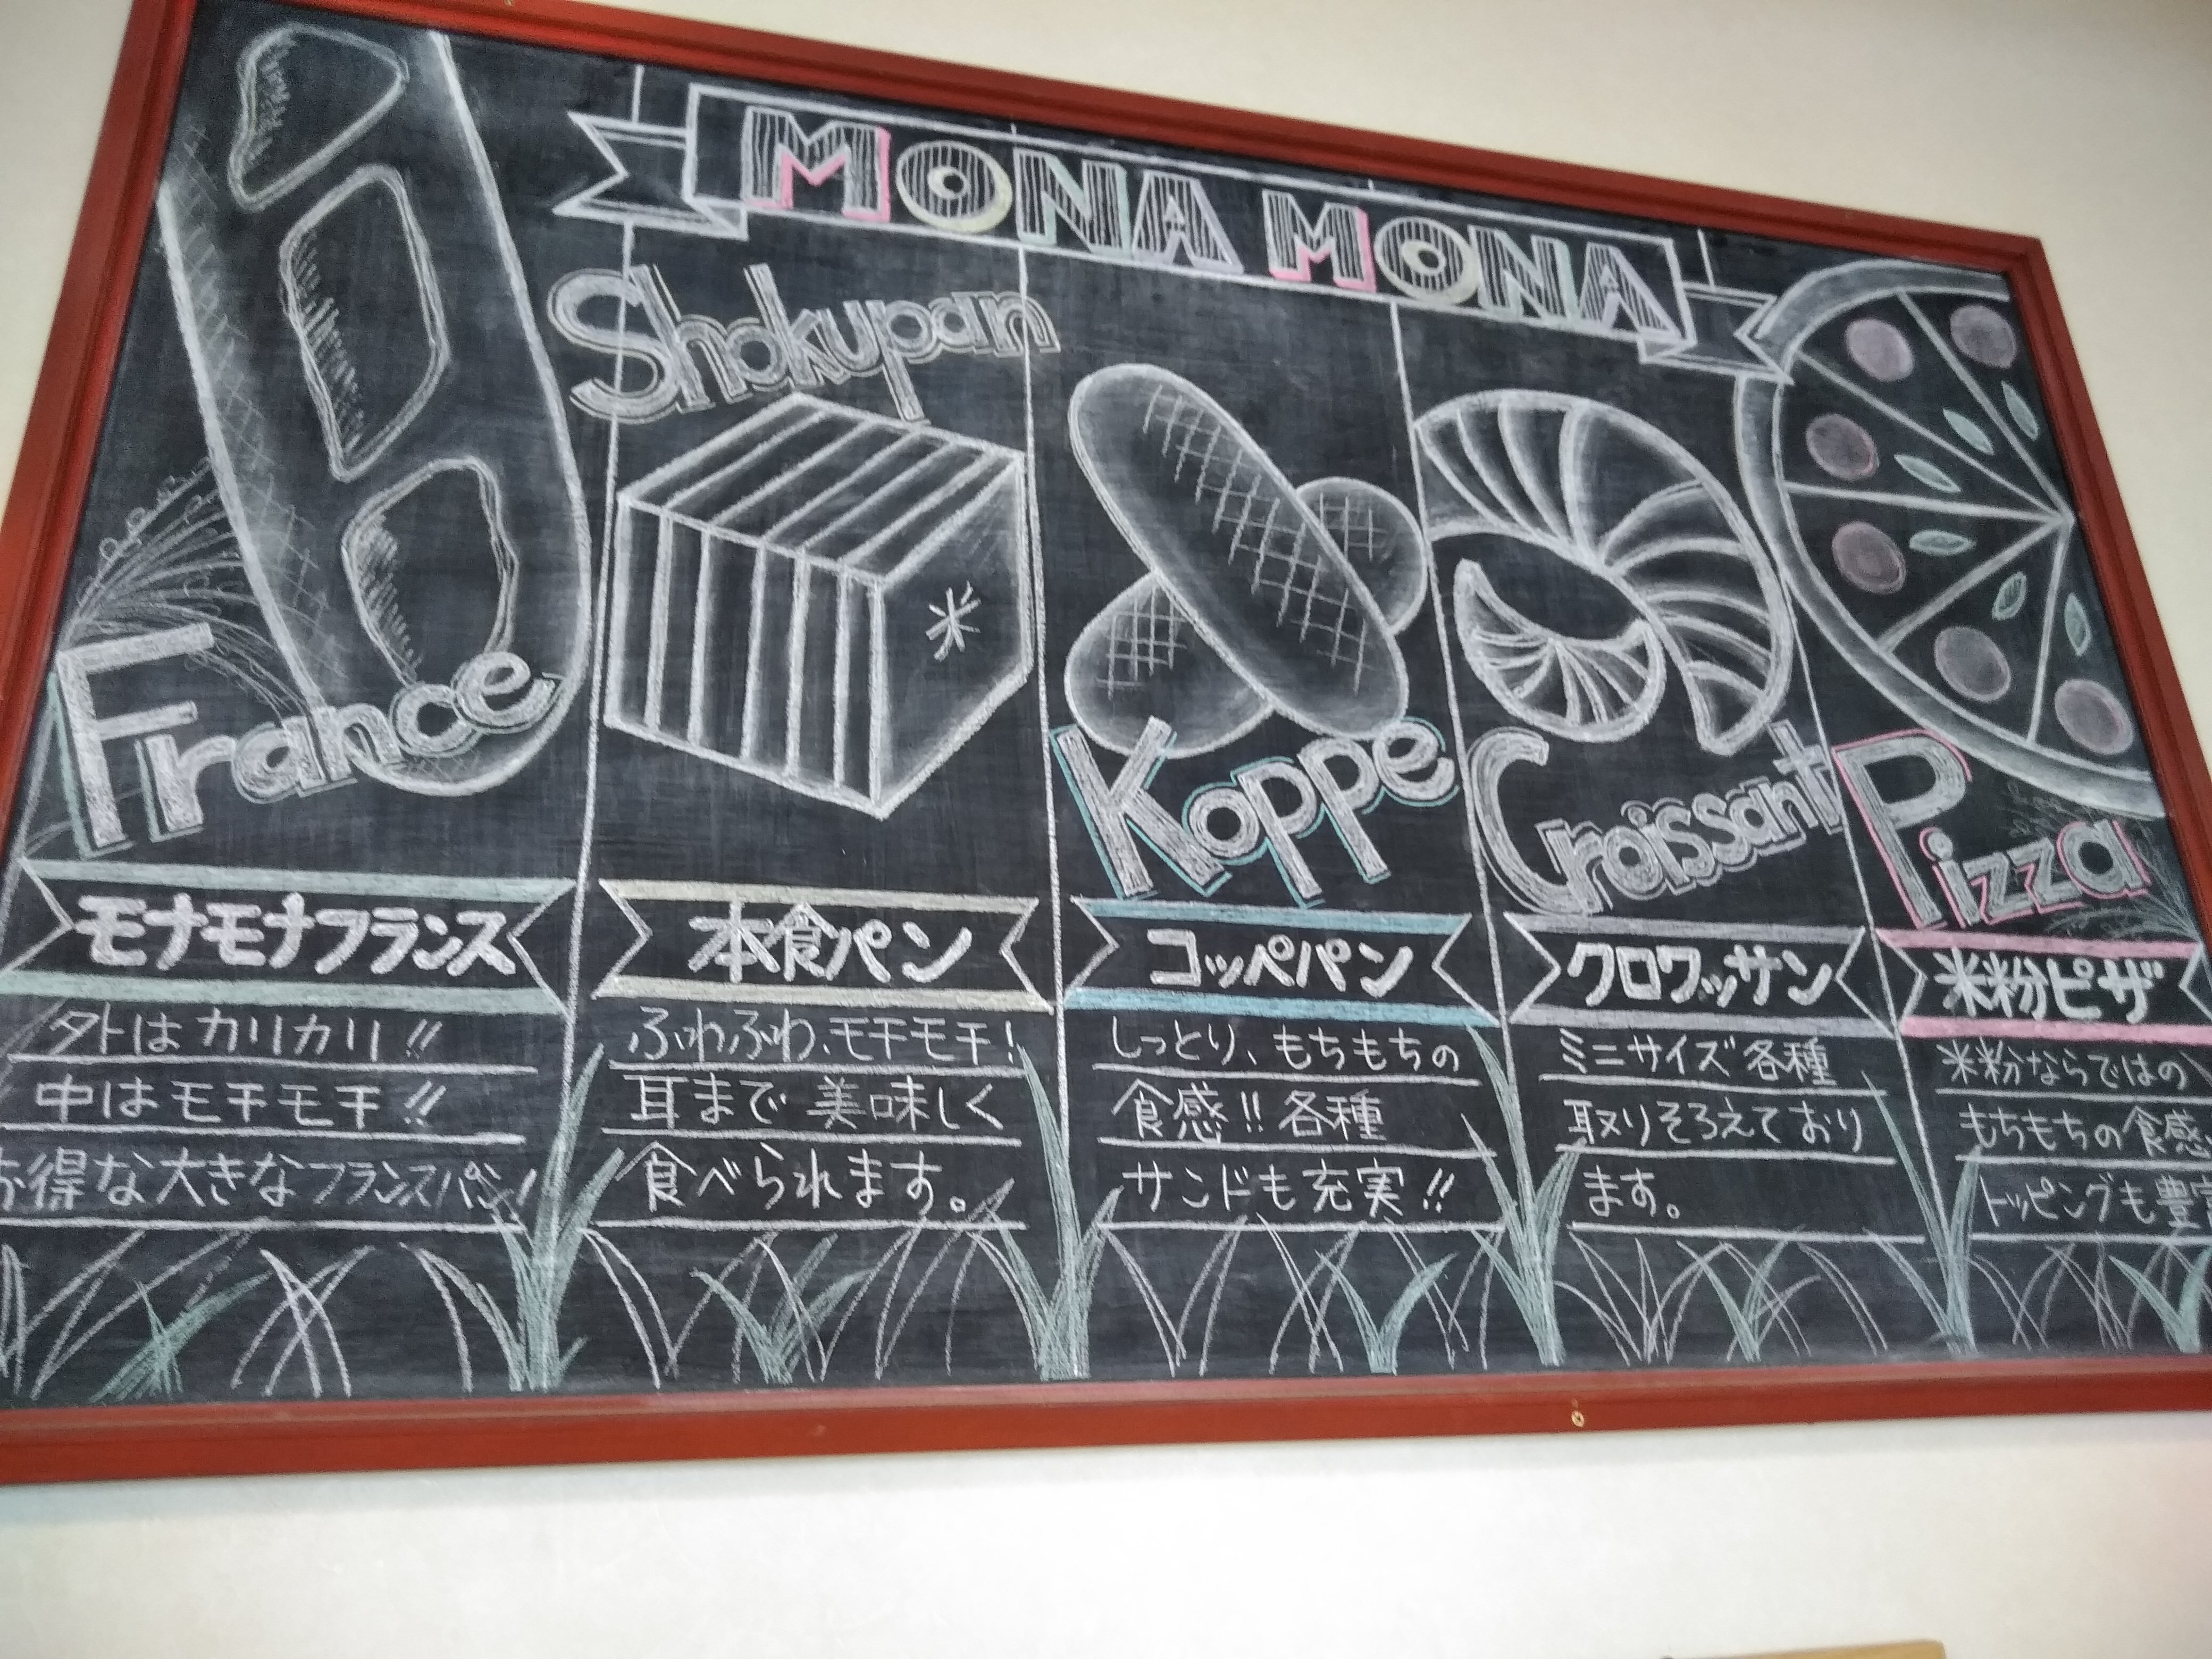 MONA MONA
France
モナモナフランス
外はカリカリ!!
中はモチモチ!!
お得な大きなフランスパン!
Shokupan
米
本食パン
ふわふわ、モチモチ!
耳まで美味しく
食べられます。
Koppe
コッペパン
しっとり、もちもちの
食感!!各種
サンドも充実!!
Croissant
クロワッサン
ミニサイズ各種
取りそろえており
ます。
Pizza
米粉ピザ
米粉ならではの
もちもちの食感
トッピングも豊